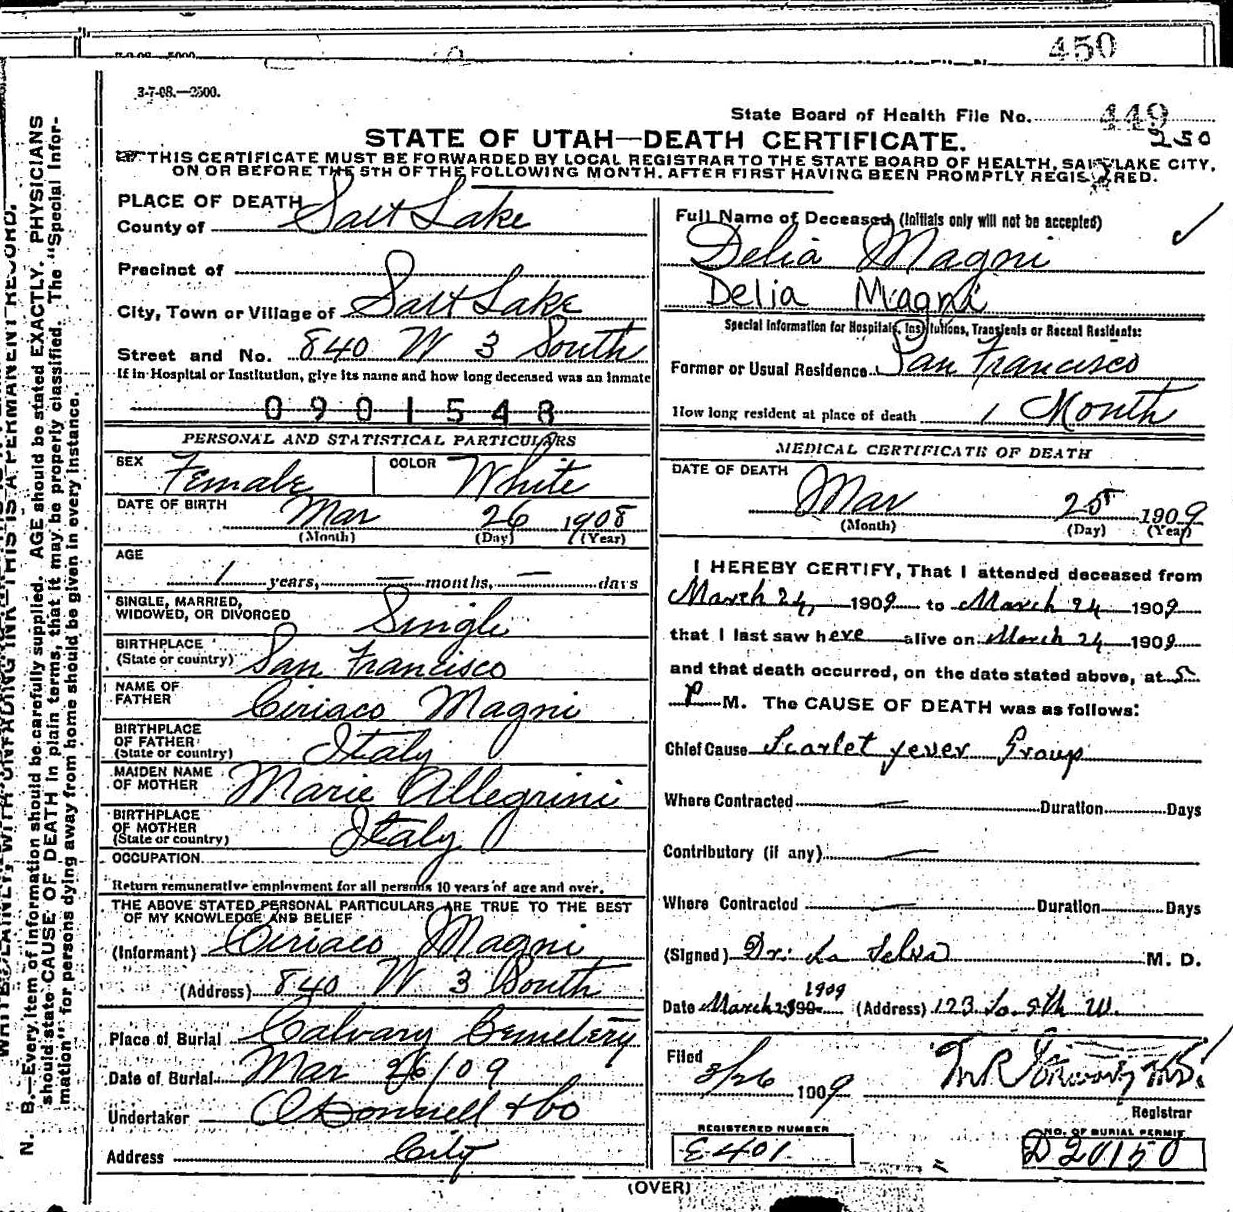 450
3-7-08.—2500.
State Board of Health File No. 449
250
STATE OF UTAH—DEATH CERTIFICATE.
THIS CERTIFICATE MUST BE FORWARDED BY LOCAL REGISTRAR TO THE STATE BOARD OF HEALTH, SALT LAKE CITY,
ON OR BEFORE THE 5TH OF THE FOLLOWING MONTH. AFTER FIRST HAVING BEEN PROMPTLY REGISTERED.
N. B.—Every item of information should be carefully supplied. AGE should be stated EXACTLY. PHYSICIANS
should state CAUSE OF DEATH in plain terms, that it may be properly classified. The "Special Infor-
mation" for persons dying away from home should be given in every instance.
PLACE OF DEATH
County of Salt Lake
Precinct of
City, Town or Village of Salt Lake
Street and No. 840 W 3 South
If in Hospital or Institution, give its name and how long deceased was an inmate
0901548
PERSONAL AND STATISTICAL PARTICULARS
SEX Female COLOR White
DATE OF BIRTH Mar 26 1908
(Month) (Day) (Year)
AGE
1 years, — months, — days
SINGLE, MARRIED,
WIDOWED, OR DIVORCED Single
BIRTHPLACE
(State or country) San Francisco
NAME OF
FATHER Ciriaco Magni
BIRTHPLACE
OF FATHER
(State or country) Italy
MAIDEN NAME
OF MOTHER Marie Allegrini
BIRTHPLACE
OF MOTHER
(State or country) Italy
OCCUPATION
Return remunerative employment for all persons 10 years of age and over.
THE ABOVE STATED PERSONAL PARTICULARS ARE TRUE TO THE BEST
OF MY KNOWLEDGE AND BELIEF
(Informant) Ciriaco Magni
(Address) 840 W 3 South
Place of Burial Calvary Cemetery
Date of Burial Mar 26/09
Undertaker O'Donnell & Co
Address City
Full Name of Deceased (Initials only will not be accepted)
Delia Magni
Delia Magni
Special Information for Hospitals, Institutions, Transients or Recent Residents:
Former or Usual Residence San Francisco
How long resident at place of death 1 Month
MEDICAL CERTIFICATE OF DEATH
DATE OF DEATH
Mar 25 1909
(Month) (Day) (Year)
I HEREBY CERTIFY, That I attended deceased from
March 24, 1909 to March 24 1909
that I last saw here alive on March 24 1909
and that death occurred, on the date stated above, at 5
P M. The CAUSE OF DEATH was as follows:
Chief Cause Scarlet fever Group
Where Contracted — Duration Days
Contributory (if any) —
Where Contracted — Duration Days
(Signed) Dr. La Selva M. D.
Date March 25 1909 (Address) 123 So. 5th W.
Filed 3/26 1909
Registrar
REGISTERED NUMBER
E401
NO. OF BURIAL PERMIT
D20150
(OVER)